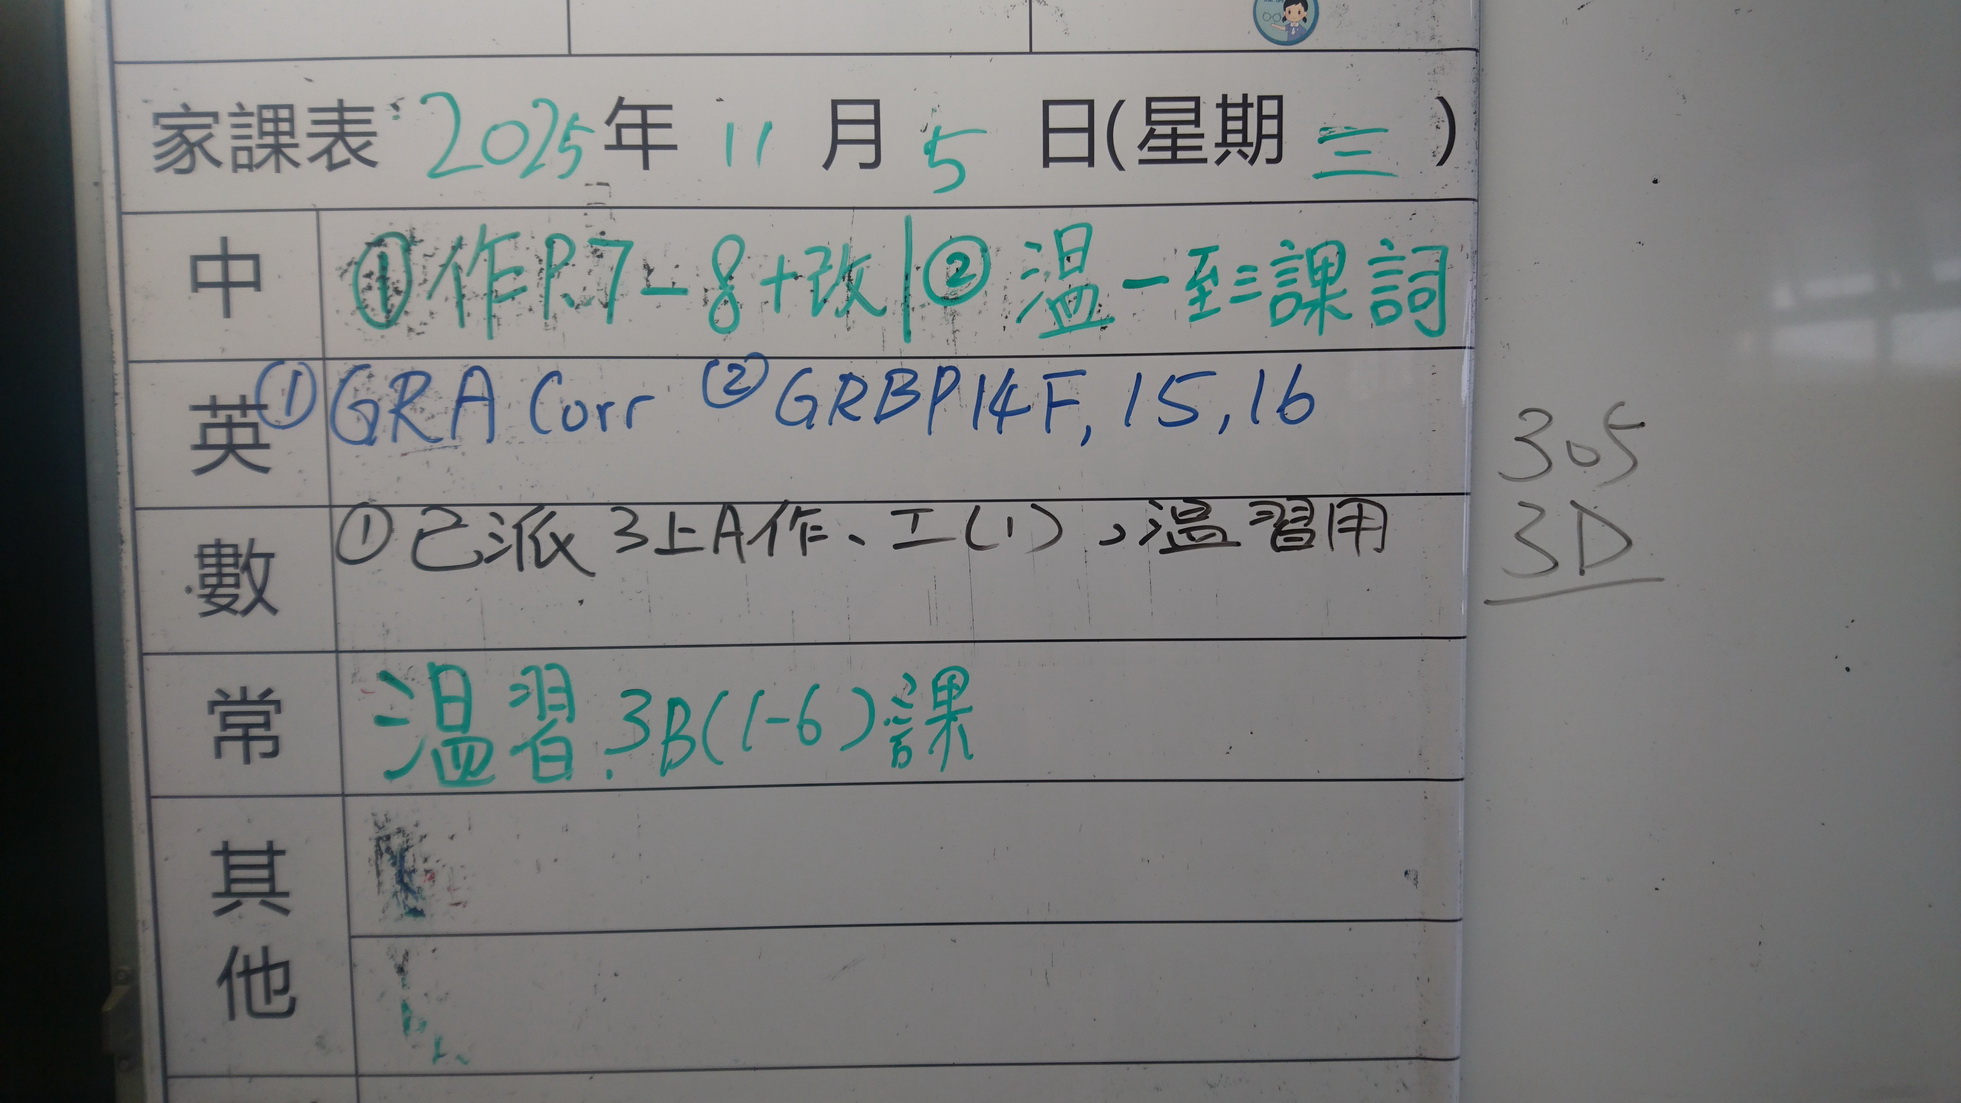 家課表：2025年 11 月 5 日(星期 三 )
中 ①作P.7-8+改|② 温一至三課詞
英 ①GRA Corr ②GRBP14F, 15, 16
數 ①已派3上A作、工(1)，温習用
常 温習.3B(1-6)課
其他
305
3D